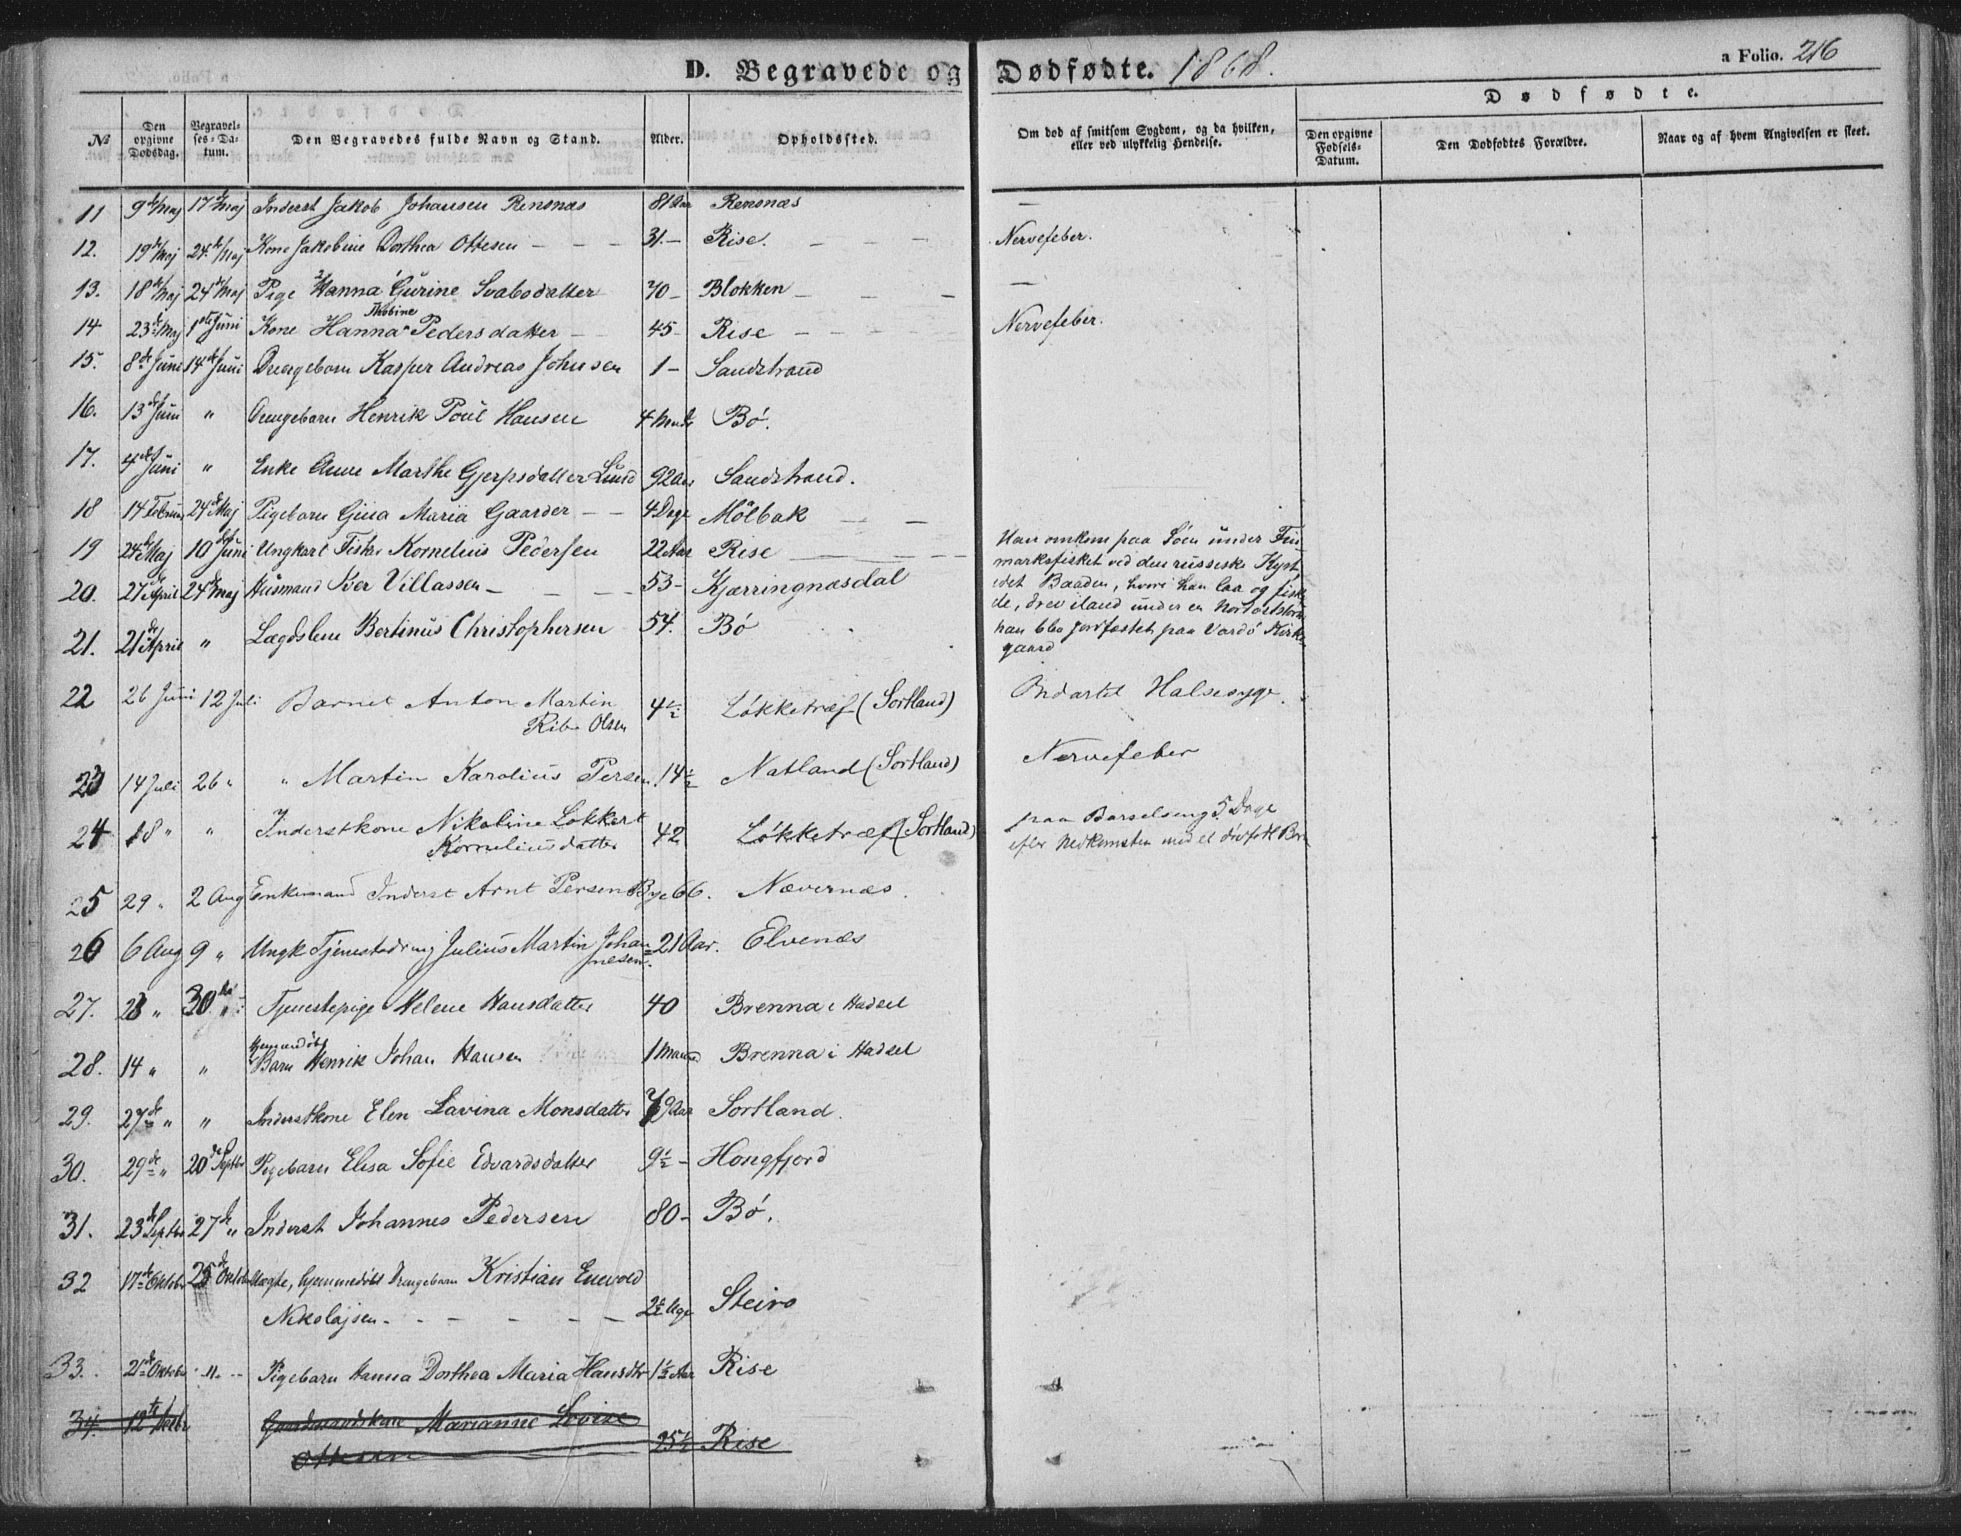 D. Begravede og Dødfødte. 1868.
a Folio. 216
Dødfødte.
No
Den opgivne Dødsdag.
Begravelses-Datum.
Den Begravedes fulde Navn og Stand.
Alder.
Opholdssted.
Om død af smitsom Sygdom, og da hvilken, eller ved ulykkelig Hendelse.
Den opgivne Fødsels-Datum.
Den Dødfødtes Forældre.
Naar og af hvem Angivelsen er skeet.
11 9de Maj 17de Maj Inderst Jakob Johansen Rensnæs 81 Aar Rensnæs —
12. 19de Maj 24de Maj Kone Jakobine Dorthea Ottesen — — — 31.— Rise. — — — Nervefeber.
13. 18de Maj 24de Maj Pige Hanna Gurine Svabodatter 70 — Blokken — — — —
14 23de Maj 1ste Juni Kone Hanna Thobine Pedersdatter — 45 — Rise — Nervefeber.
15. 8de Juni 14de Juni Drengebarn Kasper Andreas Johnsen 1 — Sandstrand
16. 13de Juni " Drengebarn Henrik Poul Hansen 4 Mndr Bø.
17. 4de Juni " Enke Anne Marthe Gjerpsdatter Lund 92 Aar Sandstrand.
18 14 Februar 24de Maj Pigebarn Gina Maria Gaarder — — 4 Dage Mølbak — —
19 24de Maj 10de Juni Ungkarl Fisker Kornelius Pedersen 22 Aar Rise — — —
Han omkom paa Søen under Fin-
marksfisket ved den russiske Kyst
idet Baaden, hvori han laa og fisk-
de, drev iland under en Nordoststorm
han blev jordfæstet paa Vardø Kirke-
gaard
20. 27de April 24de Maj Husmand Iver Villassen — — — — 53 — Kjærringnæsdal
21. 21de April " Lægdslem Bertinus Christophersen 54. Bø
22 26 Juni 12 Juli Barnet Anton Martin
Ribe Olsen 4½ Løkketræf (Sortland) Ondartet Halsesyge.
23 14 Juli 26 " " Martin Karolius Persen 14½ Natland (Sortland) Nervefeber
24 18 " " Inderstkone Nikoline Lokkert
Korneliusdatter 42 Løkketræf (Sortland) paa Barselseng 5 Dage
efter Nedkomsten med et dødfødt Barn
25 29 " 2 Aug Enkemand Inderst Arnt Persen Bye 66. Nævernæs.
26 6 Aug 9 " Ungk Tjenestedreng Julius Martin Johan-
nesen. 21 Aar. Elvenæs
27. 23 " 30te " Tjenestepige Helene Hansdatter 40 Brenna i Hadsel
28. 14 " " hjemmedøbt
Barn Henrik Johan Hansen 1 Maaned Brenna i Hadsel
29. 27de " " Inderstkone Elen Lavina Monsdatter 79 Aar Sortland.
30. 29de " 20de Septbr Pigebarn Elisa Sofie Edvardsdatter 9½ — Hongfjord
31. 23de Septbr 27de " Inderst Johannes Pedersen 80 — Bø.
32 17de Oktobr 25de Oktobr Uægte, hjemmedøbt Drengebarn Kristian Enevold
Nikolajsen. — — — — — 2½ Uge Steiro
33. 21de Oktobr " Pigebarn Hanna Dorthea Maria Hansdtr 1½ Aar Rise
34. 12te Gaardmandskone Marianne Lovise
Ottesen 25½ Rise